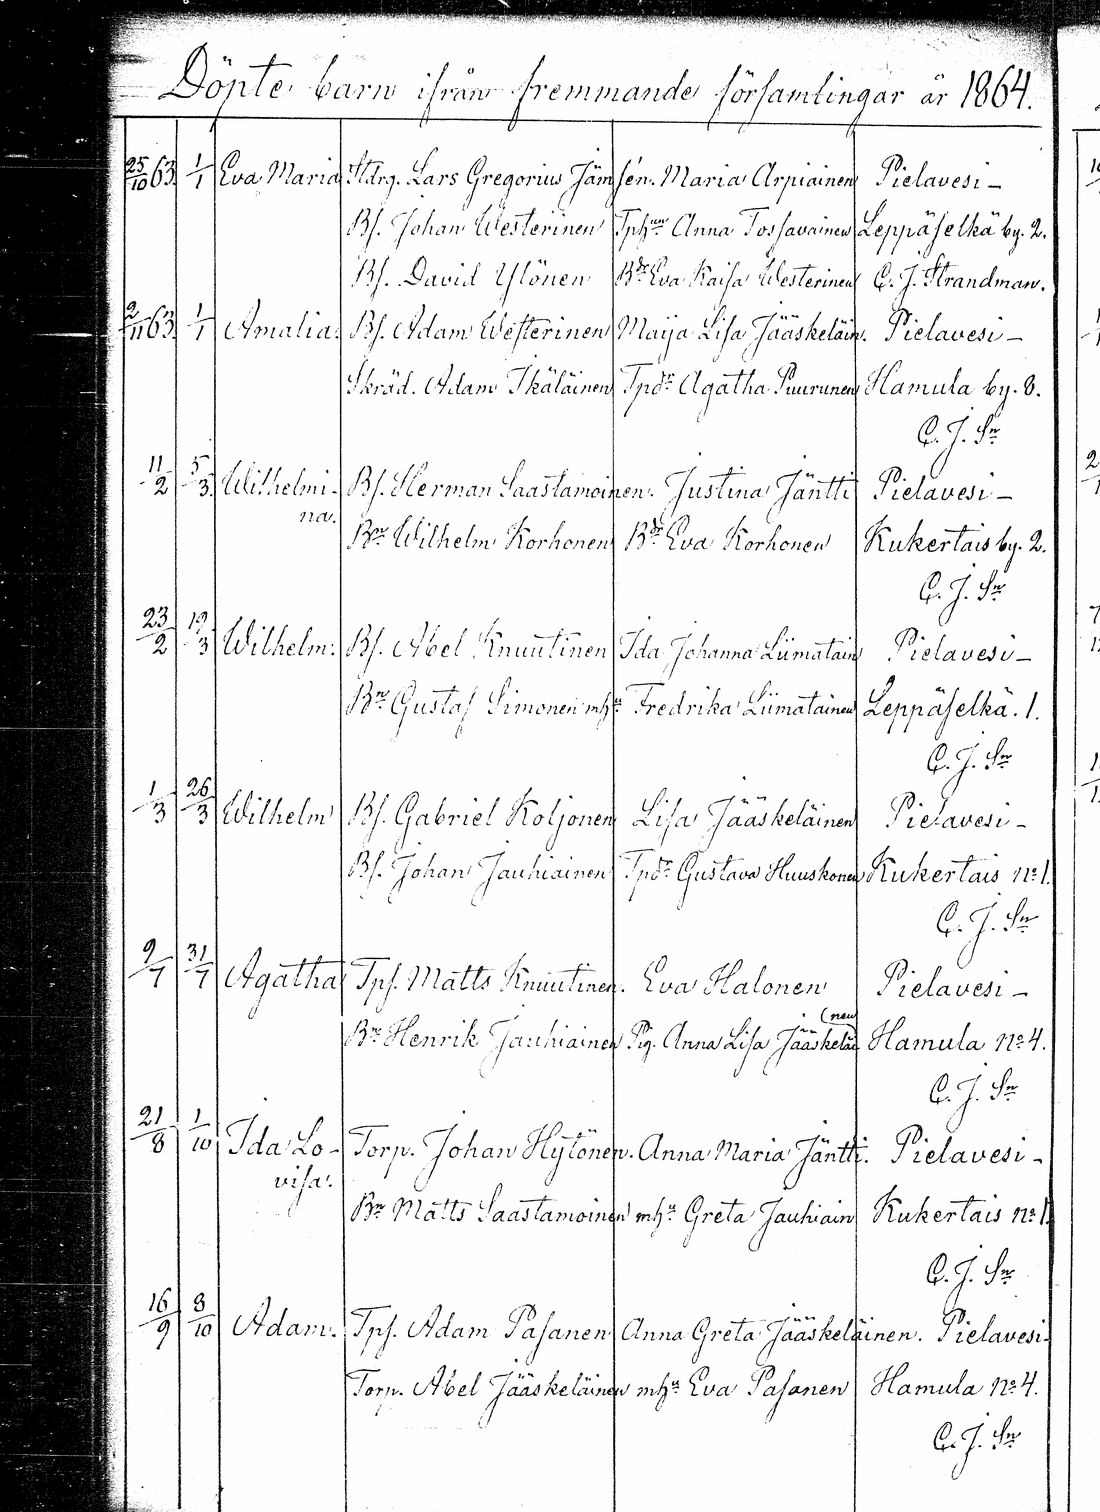 Döpte barn ifrån fremmande församlingar år 1864.
25/10 63. 1/1 Eva Maria Ildrg. Lars Gregorius Jämsén. Maria Arpiainen Pielavesi –
Bs. Johan Westerinen Tphun Anna Tossavainen Leppäselkä by. 2.
Bs. David Ylönen Bdr Eva Kaisa Westerinen C. J. Strandman.
2/11 63. 1/1 Amalia. Bs. Adam Westerinen Maija Lisa Jääskeläin. Pielavesi –
Skräd. Adam Ikäläinen Tpdr Agatha Puurunen Hamula by. 8.
C. J. Sn
11/2 5/3. Wilhelmi- Bs. Herman Saastamoinen. Justina Jäntti Pielavesi –
na. Bn Wilhelm Korhonen Bdr Eva Korhonen Kukertais by. 2.
C. J. Sn
23/2 19/3 Wilhelm. Bs. Abel Knuutinen Ida Johanna Liimatain Pielavesi –
Bn Gustaf Simonen mhu Fredrika Liimatainen Leppäselkä. 1.
C. J. Sn
1/3 26/3 Wilhelm Bs. Gabriel Koljonen Lisa Jääskeläinen Pielavesi –
Bs. Johan Jauhiainen Tpdr Gustava Huuskonen Kukertais No 1.
C. J. Sn
9/7 31/7 Agatha Tps. Matts Knuutinen. Eva Halonen Pielavesi –
Bn Henrik Jauhiainen Pig. Anna Lisa Jääskeläi (nen Hamula No 4.
C. J. Sn
21/8 1/10 Ida Lo- Torp. Johan Hytönen. Anna Maria Jäntti. Pielavesi –
visa. Bn Matts Saastamoinen mhu Greta Jauhiain Kukertais No 1.
C. J. Sn
16/9 8/10 Adam. Tps. Adam Pasanen Anna Greta Jääskeläinen. Pielavesi.
Torp. Abel Jääskeläinen mhu Eva Pasanen Hamula No 4.
C. J. Sn